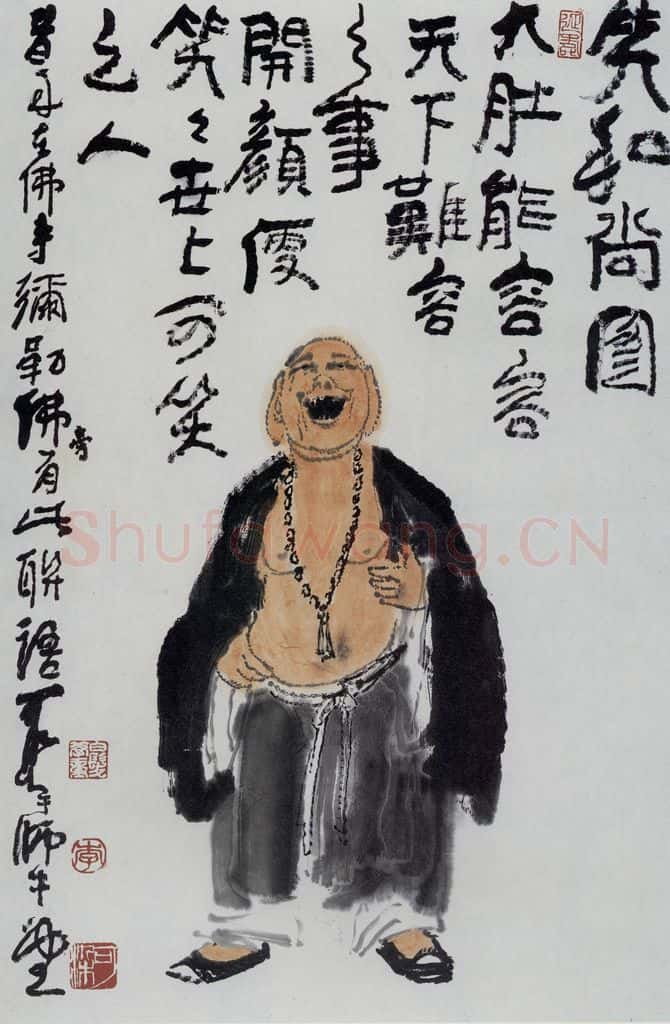 笑和尚圖
大肚能容容
天下難容
之事
開顏便
笑々世上可笑
之人
在佛寺彌勒佛旁有此聯語 師牛堂
李
可染
Shufawang.CN